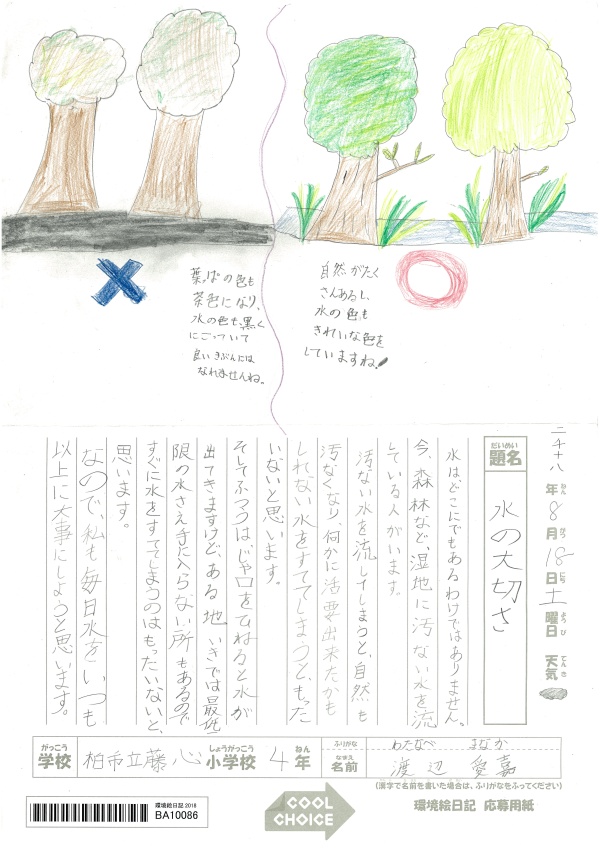 葉っぱの色も
茶色になり、
水の色も、黒く
にごっていて
良いきぶんには
なれませんね。
自然がたく
さんあるし、
水の色も
きれいな色を
していますね!
二千十八年8月18日土曜日 天気
ねん がつ にち ようび てんき
だいめい
題名
水の大切さ
水はどこにでもあるわけではありません。
今、森林など、湿地に汚ない水を流
している人がいます。
汚ない水を流してしまうと、自然も
汚なくなり、何かに活要出来たかも
しれない水をすててしまうと、もった
いないと思います。
そしてふつうはじゃ口をひねると水が
出てきますけど、ある地いきでは最低
限の水さえ手に入らない所もあるので
すぐに水をすててしまうのはもったいないと、
思います。
なので、私も毎日水をいつも
以上に大事にしようと思います。
がっこう しょうがっこう ねん
学校 柏市立藤心小学校 4年
ふりがな わたなべ まなか
なまえ
名前 渡辺 愛嘉
(漢字で名前を書いた場合は、ふりがなをふってください)
環境絵日記 2018
BA10086
COOL
CHOICE
環境絵日記 応募用紙